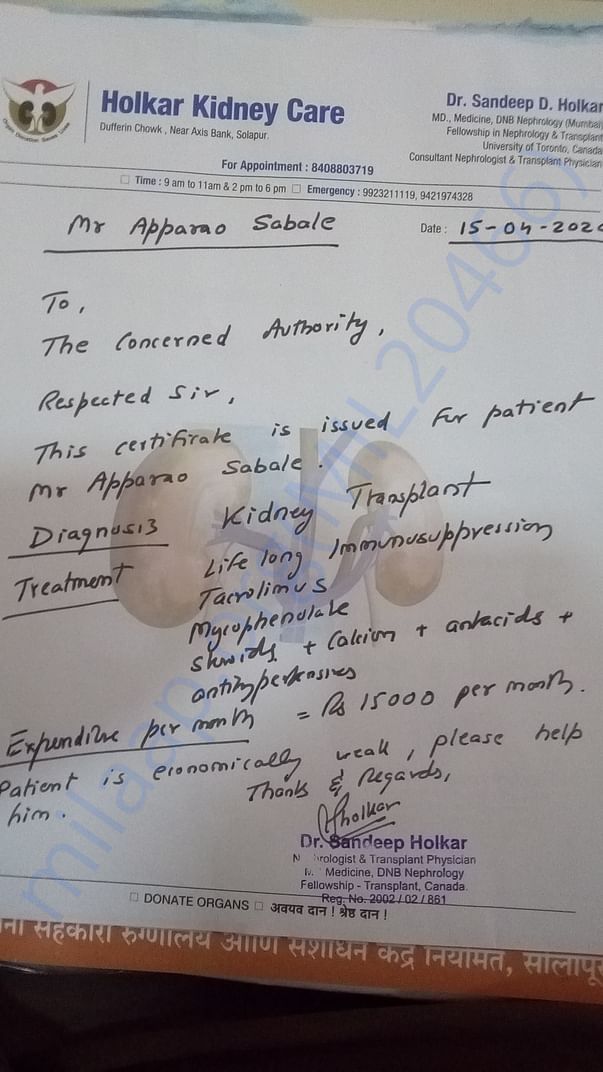 Holkar Kidney Care
Dufferin Chowk , Near Axis Bank, Solapur.
Dr. Sandeep D. Holkar
MD., Medicine, DNB Nephrology (Mumbai)
Fellowship in Nephrology & Transplant
University of Toronto, Canada
Consultant Nephrologist & Transplant Physician
For Appointment : 8408803719
Time : 9 am to 11am & 2 pm to 6 pm Emergency : 9923211119, 9421974328
Mr Apparao Sabale
Date : 15-04-202
To,
The Concerned Authority,
Respected Sir,
This certifirate is issued For patient
Mr Apparao Sabale.
Diagnosis Kidney Transplant
Treatment Life long Immunosuppression
Tacrolimus
Mycophenolate
steroids + Calcium + antacids +
antihypertensives
Expenditure per month = Rs 15000 per month.
Patient is economically weak, please help
him.
Thanks & Regards,
Dr. Sandeep Holkar
rologist & Transplant Physician
Medicine, DNB Nephrology
Fellowship - Transplant, Canada.
Reg. No. 2002 / 02 / 861
DONATE ORGANS अवयव दान ! श्रेष्ठ दान !
सहकारी रुग्णालय आणि संशोधन केंद्र नियमित, सोलापूर